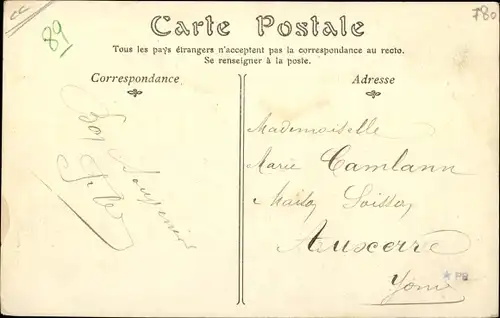 cc
89
780
Carte Postale
Tous les pays étrangers n'acceptent pas la correspondance au recto.
Se renseigner à la poste.
Correspondance
Adresse
Bon
Souvenir
Mademoiselle
Marie Camlann
Auxerre
Yonne
PB